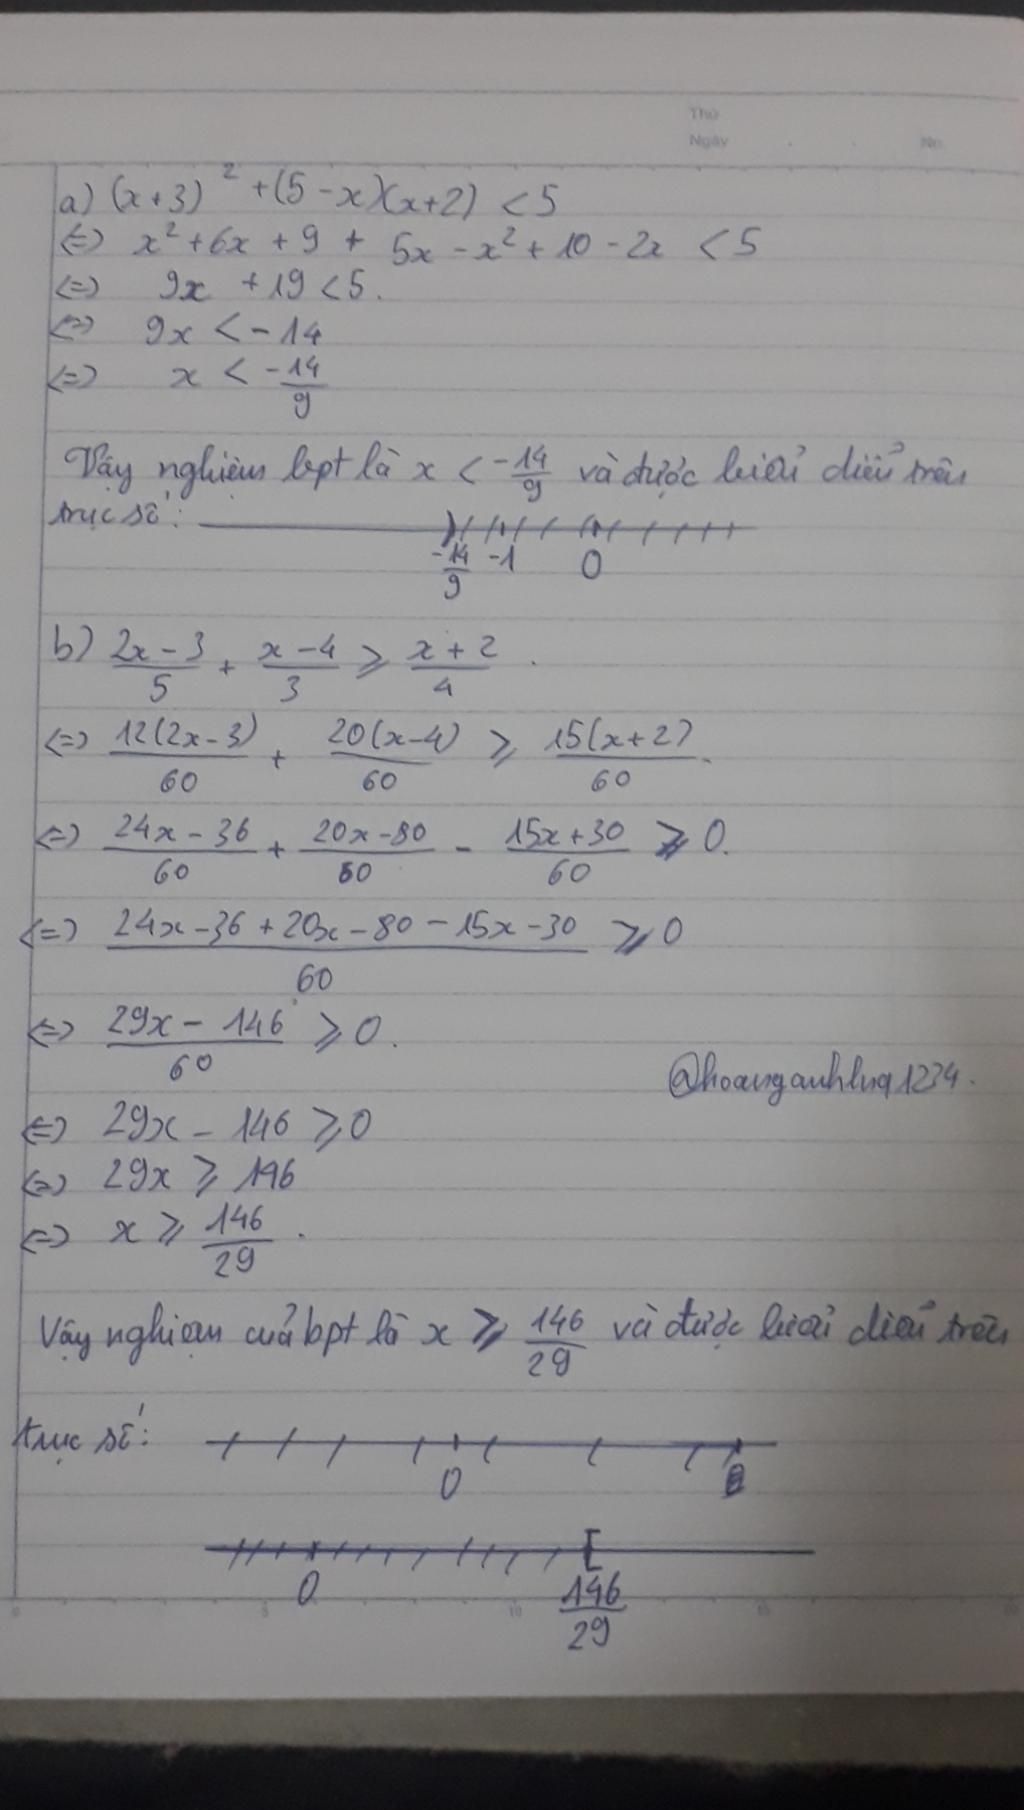 Thứ
Ngày No.
a) (x+3)² + (5-x)(x+2) < 5
<=> x² + 6x + 9 + 5x - x² + 10 - 2x < 5
<=> 9x + 19 < 5.
<=> 9x < -14
<=> x < -14/9
Vậy nghiệm bpt là x < -14/9 và được biểu diễn trên
trục số:
-14/9 -1 0
b) (2x-3)/5 + (x-4)/3 ⩾ (x+2)/4.
<=> 12(2x-3)/60 + 20(x-4)/60 ⩾ 15(x+2)/60.
<=> (24x-36)/60 + (20x-80)/60 - (15x+30)/60 ⩾ 0.
<=> (24x-36+20x-80-15x-30)/60 ⩾ 0
<=> (29x-146)/60 ⩾ 0.
@hoanganhluq1234.
<=> 29x - 146 ⩾ 0
<=> 29x ⩾ 146
<=> x ⩾ 146/29.
Vậy nghiệm của bpt là x ⩾ 146/29 và được biểu diễn trên
trục số:
0
0 146/29
0 5 10 15 20